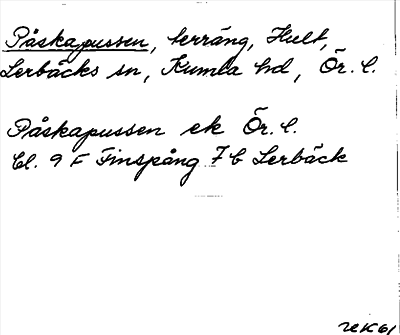 Påskapussen, terräng, Hult,
Lerbäcks sn, Kumla hd, Ör. l.
Påskapussen ek Ör. l.
bl. 9 F Finspång 7 b Lerbäck
UK61